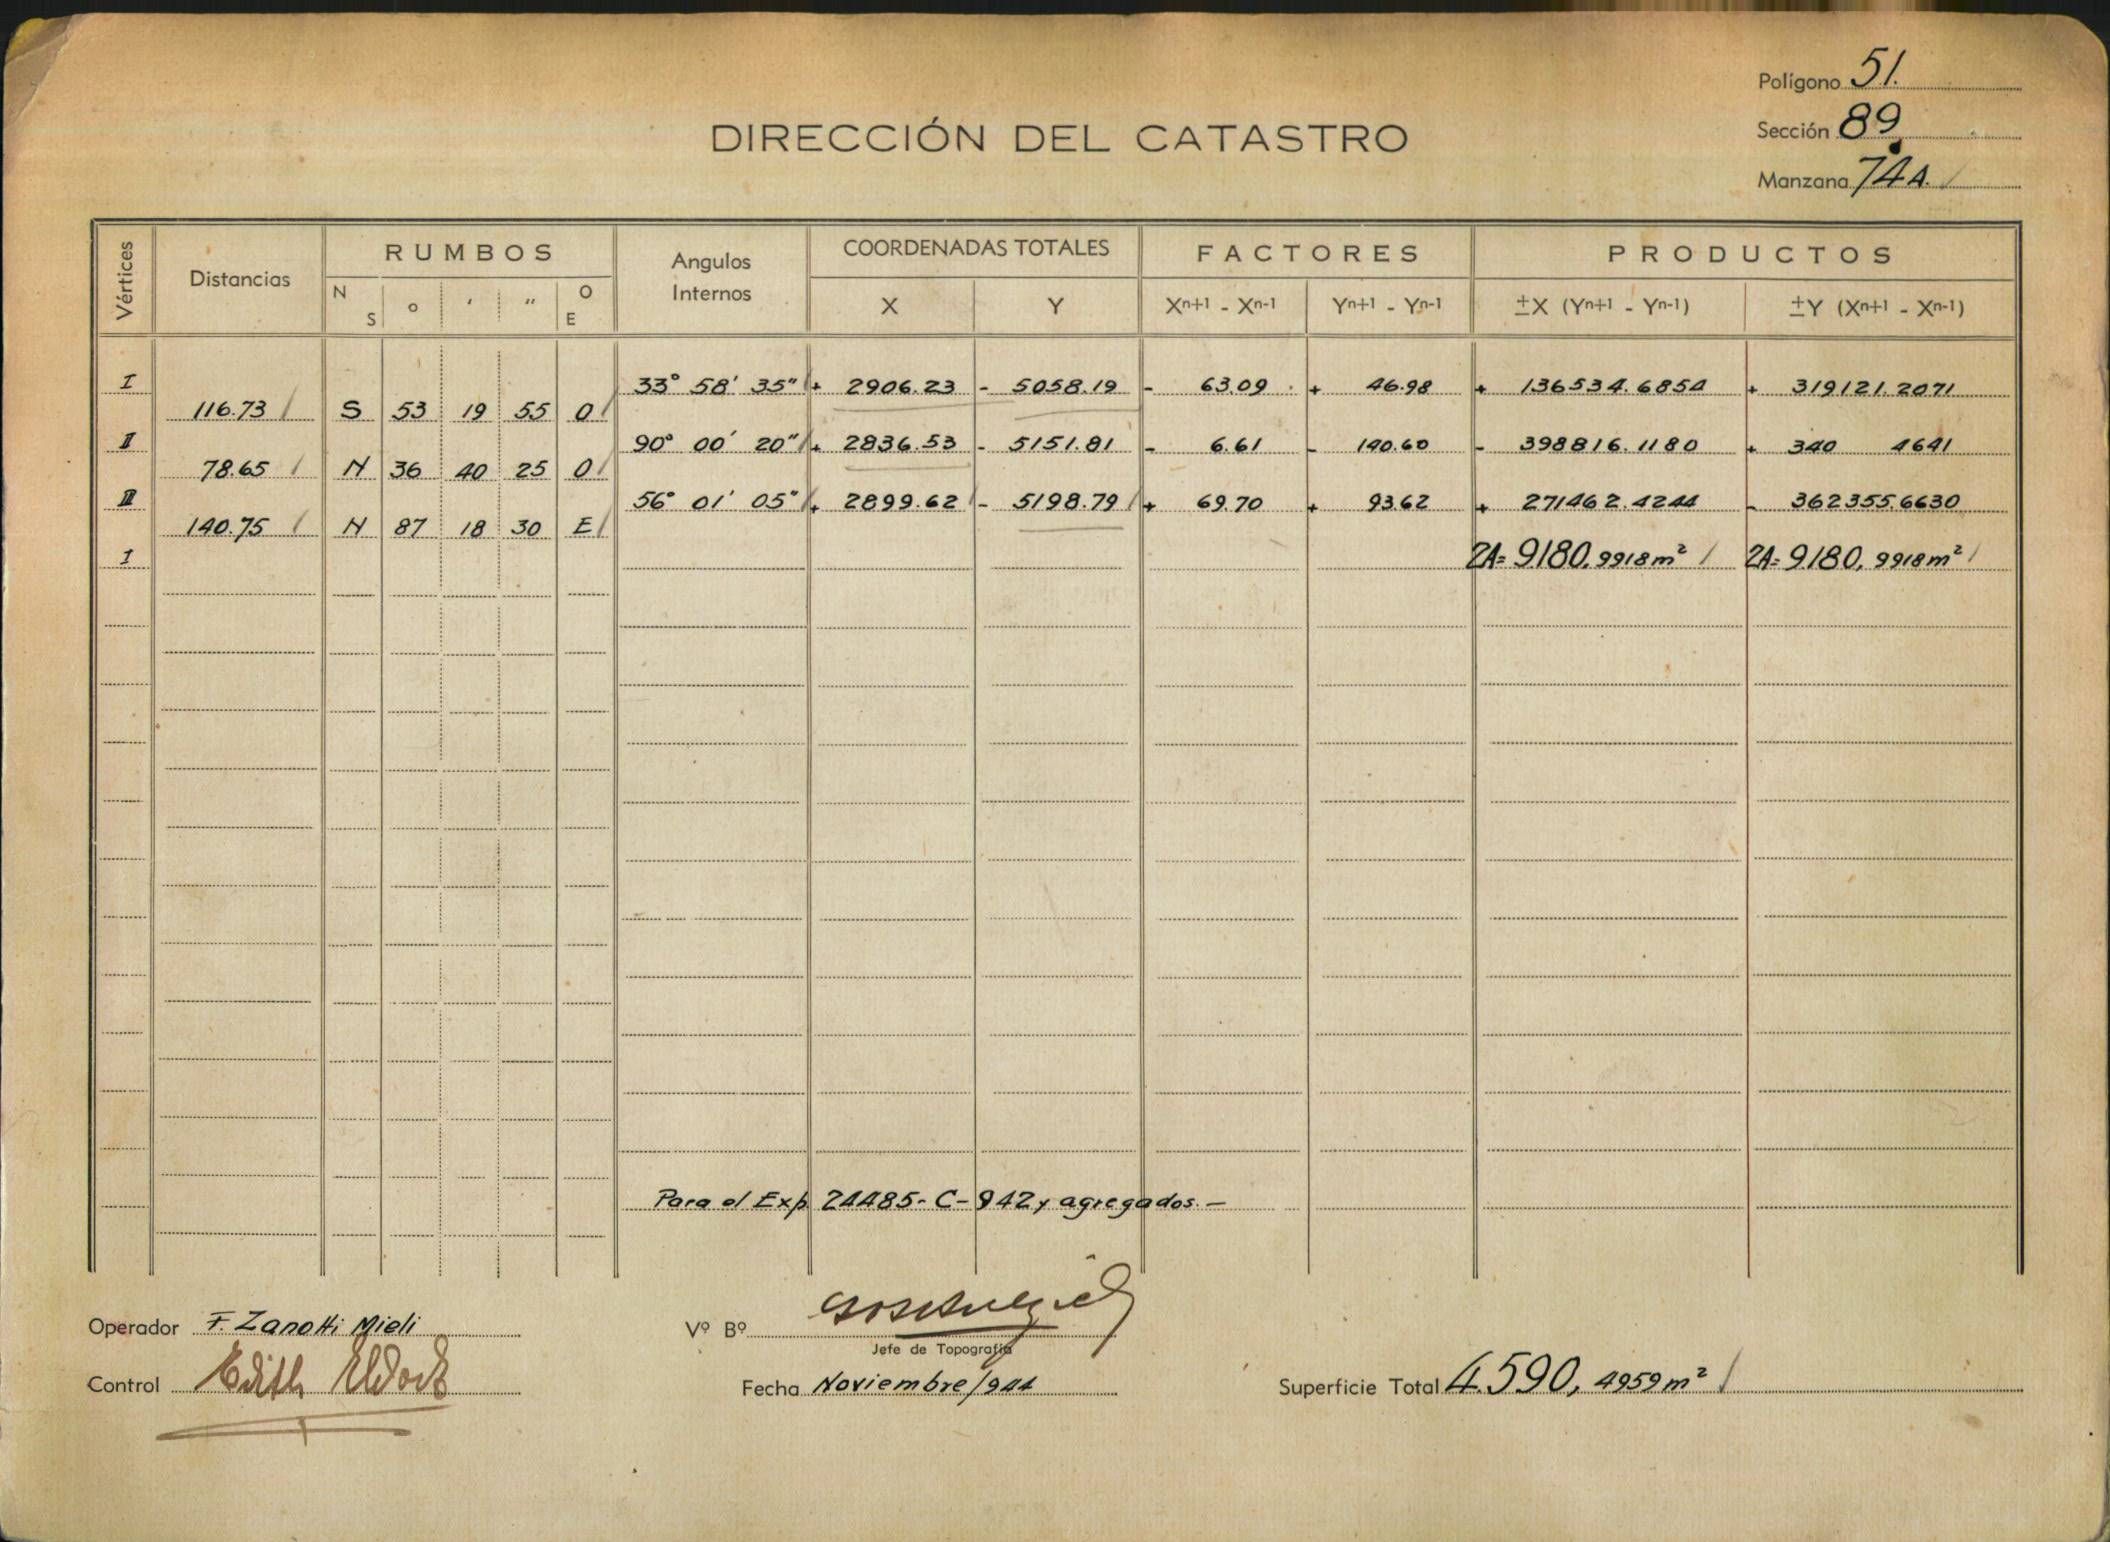 Polígono 51.
Sección 89.
Manzana 74A.
DIRECCIÓN DEL CATASTRO
Vértices Distancias RUMBOS Angulos Internos COORDENADAS TOTALES FACTORES PRODUCTOS
N S ° ′ ″ O E X Y Xn+1 - Xn-1 Yn+1 - Yn-1 ±X (Yn+1 - Yn-1) ±Y (Xn+1 - Xn-1)
I 33° 58' 35" + 2906.23 - 5058.19 - 63.09 + 46.98 + 136534.6854 + 319121.2071
116.73 S 53 19 55 O
II 90° 00' 20" + 2836.53 - 5151.81 - 6.61 - 140.60 - 398816.1180 + 340 4641
78.65 N 36 40 25 O
III 56° 01' 05" + 2899.62 - 5198.79 + 69.70 + 93.62 + 271462.4244 - 362355.6630
140.75 N 87 18 30 E
I 2A= 9.180,9918m² 2A= 9.180,9918m²
Para el Exp. 24485-C-942 y agregados.—
Operador F. Zanotti Mieli
Vº Bº
Jefe de Topografía
Control Edith
Fecha Noviembre/944
Superficie Total 4.590,4959m²